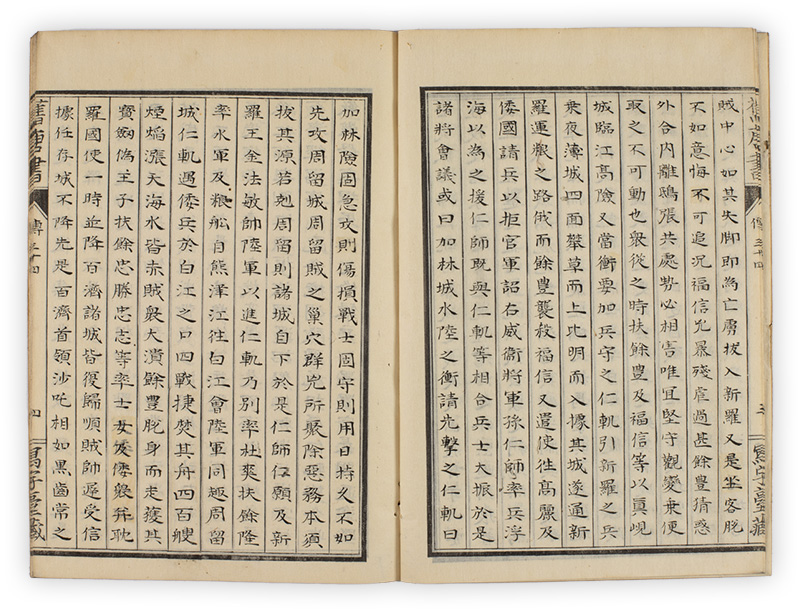 舊唐書 傳三十四
寫字臺藏
賊中心如其失脚即為亡虜拔入新羅又是坐客脱
不如意悔不可追况福信兇暴殘虐過甚餘豊猜惑
外合内離鴟張共處勢必相害唯宜堅守觀變乗便
取之不可動也衆從之時扶餘豊及福信等以真峴
城臨江高險又當衝要加兵守之仁軌引新羅之兵
乗夜薄城四面攀草而上比明而入據其城遂通新
羅運粮之路俄而餘豊襲殺福信又遣使往高麗及
倭國請兵以拒官軍詔右威衛將軍孫仁師率兵浮
海以為之援仁師既與仁軌等相合兵士大振於是
諸將會議或曰加林城水陸之衝請先擊之仁軌曰
加林險固急攻則傷損戰士固守則用日持久不如
先攻周留城周留賊之巢穴群兇所聚除惡務本須
拔其源若剋周留則諸城自下於是仁師仁願及新
羅王金法敏帥陸軍以進仁軌乃別率杜爽扶餘隆
率水軍及粮舩自熊津江往白江會陸軍同趣周留
城仁軌遇倭兵於白江之口四戰捷焚其舟四百艘
煙焔漲天海水皆赤賊衆大潰餘豊脱身而走獲其
寳劔偽王子扶餘忠勝忠志等率士女及倭衆并耽
羅國使一時並降百濟諸城皆復歸順賊帥遲受信
據任存城不降先是百濟首領沙吒相如黒齒常之
舊唐書 傳三十四 四
寫字臺藏